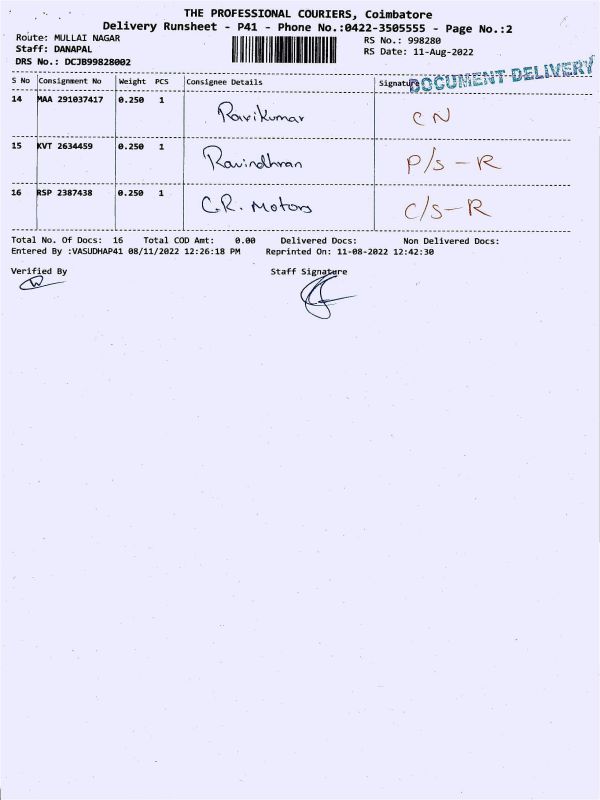 THE PROFESSIONAL COURIERS, Coimbatore
Delivery Runsheet - P41 - Phone No.:0422-3505555 - Page No.:2
Route: MULLAI NAGAR RS No.: 998280
Staff: DANAPAL RS Date: 11-Aug-2022
DRS No.: DCJB99828002
DOCUMENT DELIVERY
S No Consignment No Weight PCS Consignee Details Signature
14 MAA 291037417 0.250 1 Ravikumar CN
15 KVT 2634459 0.250 1 Ravindhran P/S-R
16 RSP 2387438 0.250 1 C.R. Motors C/S-R
Total No. Of Docs: 16 Total COD Amt: 0.00 Delivered Docs: Non Delivered Docs:
Entered By :VASUDHAP41 08/11/2022 12:26:18 PM Reprinted On: 11-08-2022 12:42:30
Verified By Staff Signature